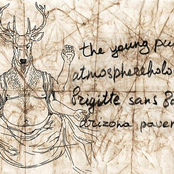 the young pu
atmosphereholo
Brigitte sans sa
arizona paver